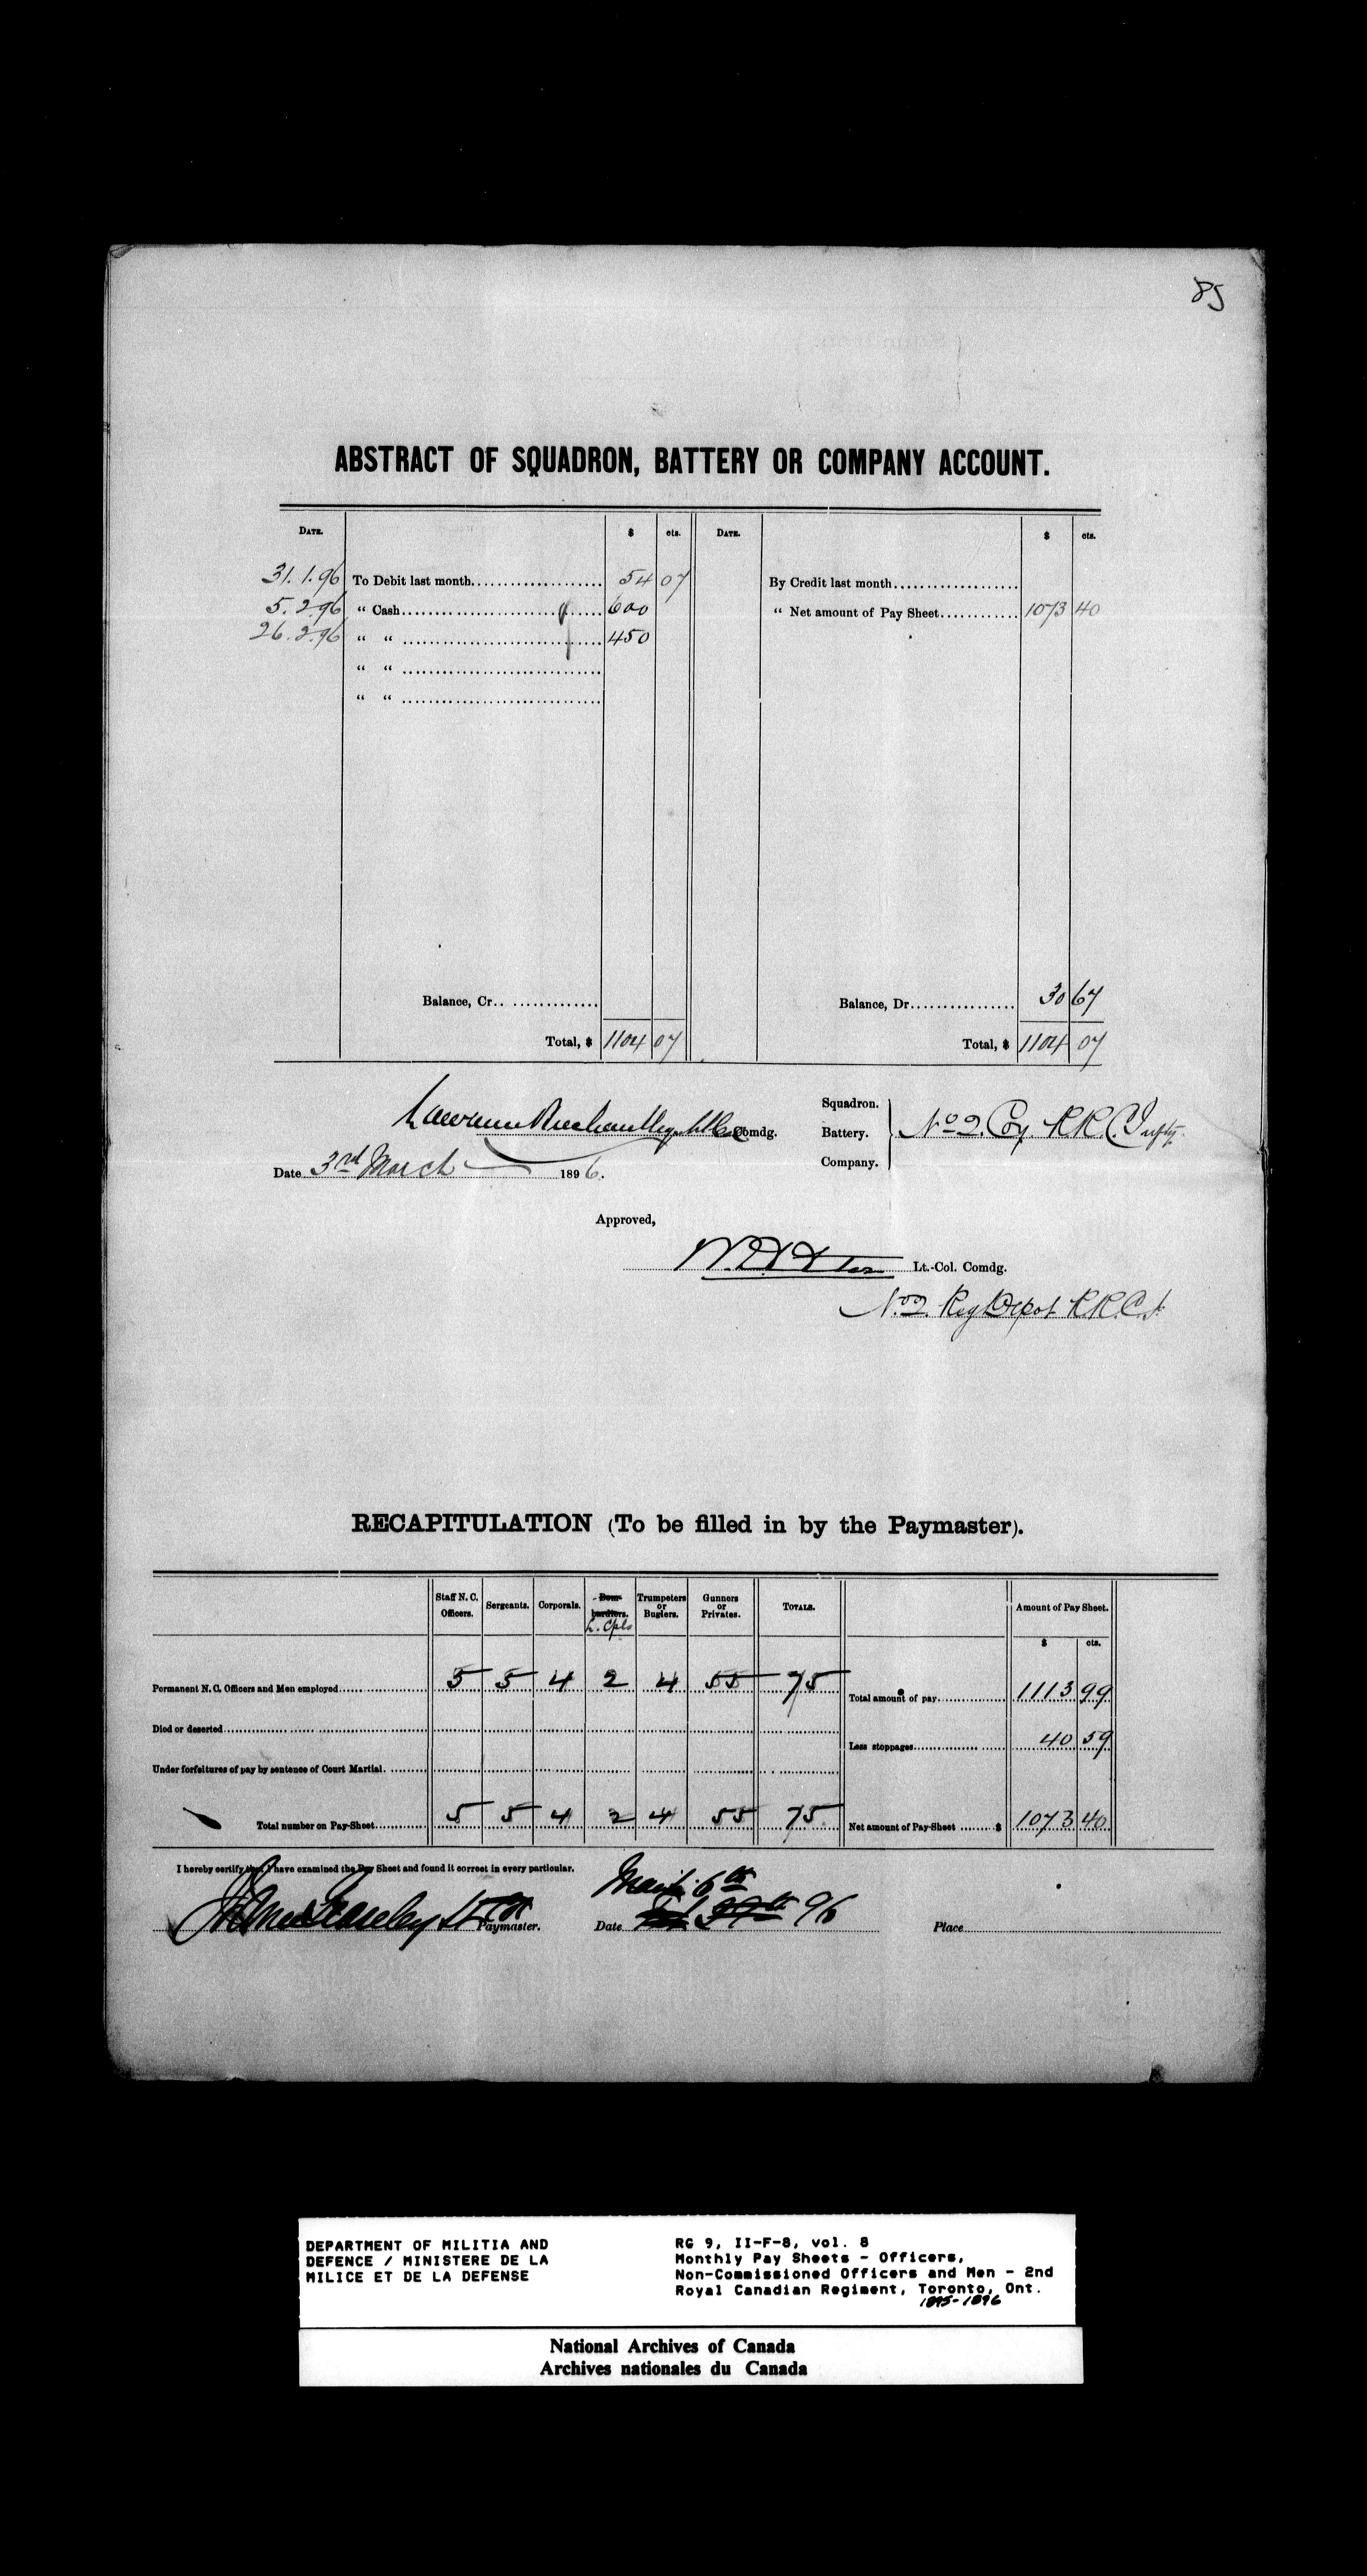 85
ABSTRACT OF SQUADRON, BATTERY OR COMPANY ACCOUNT.
DATE. $ cts. DATE. $ cts.
31.1.96 To Debit last month 54 07 By Credit last month
5.2.96 “ Cash 600 “ Net amount of Pay Sheet 1073 40
26.2.96 “ “ 450
“ “
“ “
Balance, Cr. Balance, Dr. 30 67
Total, $ 1104 07 Total, $ 1104 07
Comdg.
Squadron.
Battery. No 2. Coy. R.R.C. Infty.
Company.
Date 3rd March 1896.
Approved,
Lt.-Col. Comdg.
No 2. Reg Depot R.R.C.I.
RECAPITULATION (To be filled in by the Paymaster).
Staff N. C. Officers. Sergeants. Corporals. Bombardiers. L. Cpls Trumpeters or Buglers. Gunners or Privates. TOTALS. Amount of Pay Sheet.
$ cts.
Permanent N. C. Officers and Men employed 5 5 4 2 4 55 75 Total amount of pay 1113 99
Died or deserted Less stoppages 40 59
Under forfeitures of pay by sentence of Court Martial.
Total number on Pay-Sheet 5 5 4 2 4 55 75 Net amount of Pay-Sheet $ 1073 40
I hereby certify that I have examined the Pay Sheet and found it correct in every particular.
March 6th
Paymaster. Date 96 Place
DEPARTMENT OF MILITIA AND
DEFENCE / MINISTERE DE LA
MILICE ET DE LA DEFENSE
RG 9, II-F-8, vol. 8
Monthly Pay Sheets - Officers,
Non-Commissioned Officers and Men - 2nd
Royal Canadian Regiment, Toronto, Ont.
1895-1896
National Archives of Canada
Archives nationales du Canada